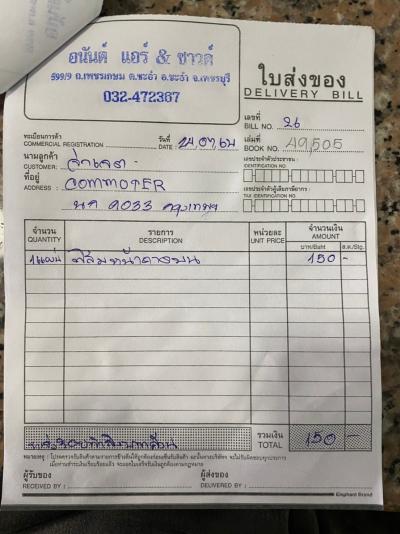 อนันต์ แอร์ & ซาวด์
599/9 ถ.เพชรเกษม ต.ชะอำ อ.ชะอำ จ.เพชรบุรี
032-472367
ใบส่งของ
DELIVERY BILL
เลขที่
BILL NO. 26
ทะเบียนการค้า
COMMERCIAL REGISTRATION
วันที่
DATE 24,07,64
เล่มที่
BOOK NO. 49,505
นามลูกค้า
CUSTOMER:
ที่อยู่
ADDRESS : COMMOTER
9033 กรุงเทพฯ
เลขประจำตัวประชาชน :
IDENTIFICATION NO.
เลขประจำตัวผู้เสียภาษีอากร :
TAX IDENTIFICATION NO.
จำนวน
QUANTITY
รายการ
DESCRIPTION
หน่วยละ
UNIT PRICE
จำนวนเงิน
AMOUNT
บาท/Baht
ส.ต./Stg.
1 แผ่น ฟิล์มหน้า 150 -
รวมเงิน
TOTAL 150 -
หมายเหตุ : โปรดตรวจรับสินค้าตามรายการข้างต้นให้ถูกต้องก่อนเซ็นรับสินค้า
ผู้รับของ
RECEIVED BY :
ผู้ส่งของ
DELIVERED BY :
Elephant Brand